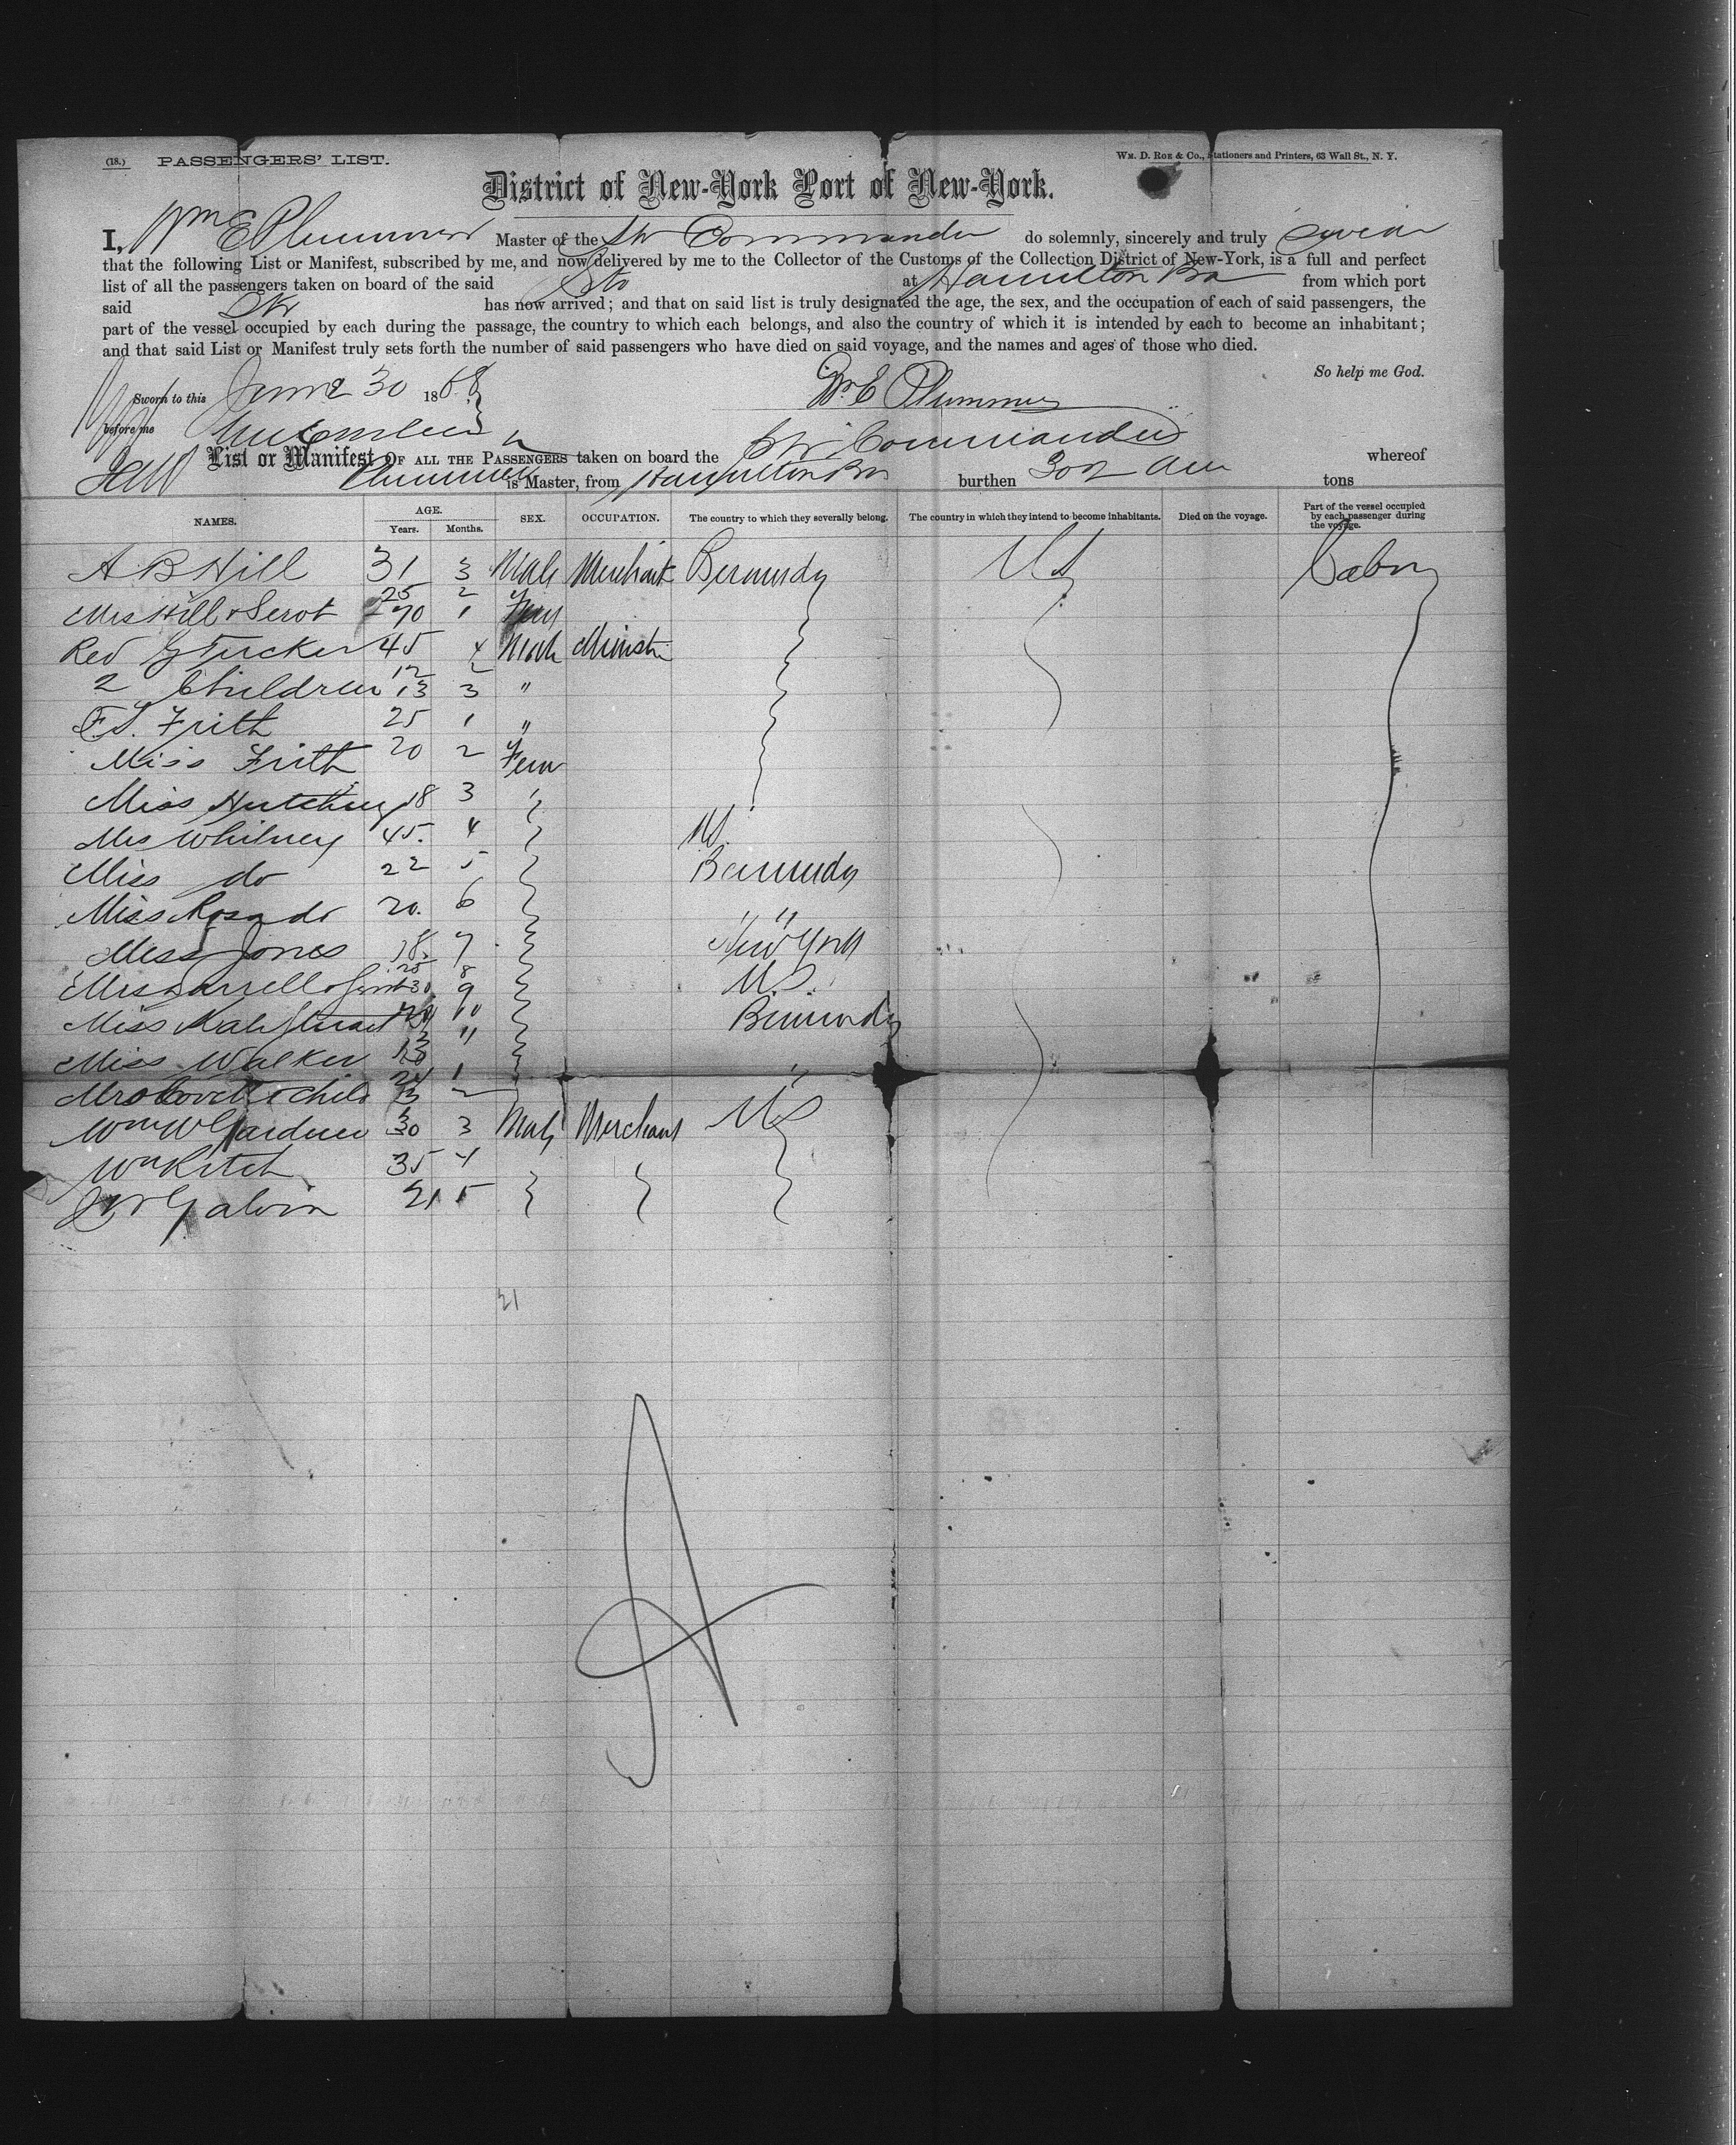 (18.) PASSENGERS' LIST. Wm. D. Roe & Co., Stationers and Printers, 63 Wall St., N. Y.
District of New-York Port of New-York.
I, Wm E Plummer Master of the Str Commander do solemnly, sincerely and truly swear
that the following List or Manifest, subscribed by me, and now delivered by me to the Collector of the Customs of the Collection District of New-York, is a full and perfect
list of all the passengers taken on board of the said Str at Hamilton Bda from which port
said Str has now arrived; and that on said list is truly designated the age, the sex, and the occupation of each of said passengers, the
part of the vessel occupied by each during the passage, the country to which each belongs, and also the country of which it is intended by each to become an inhabitant;
and that said List or Manifest truly sets forth the number of said passengers who have died on said voyage, and the names and ages of those who died.
So help me God.
Sworn to this June 30 1868 Wm E Plummer
before me
List or Manifest OF ALL THE PASSENGERS taken on board the Str Commander whereof
Plummer is Master, from Hamilton Bda burthen 302 tons
NAMES. AGE. Years. Months. SEX. OCCUPATION. The country to which they severally belong. The country in which they intend to become inhabitants. Died on the voyage. Part of the vessel occupied by each passenger during the voyage.
A B Hill 31 3 Male Merchant Bermuda US Cabin
25 2
Mrs Hill & Servt 70 1 Fem
Rev G Tucker 45 4 Male Minister
12 2
2 Children 13 3 "
F S. Frith 25 1 "
Miss Frith 20 2 Fem
Miss Hutchings 18 3
Mrs Whitney 45. 4 US.
Miss do 22 5 Bermuda
Miss Rosa do 20. 6 " "
Miss Jones 18. 7 New York
25 8
Mrs Darrell & Servt 30 9 US.
Miss 10 Bermuda
Miss Walker 18 "
24 1 "
Mrs Lovett & Child 3 2
Wm W Gardner 30 3 Male Merchant US
Wm Kitch 35 4
J W Galvin 21 5
21